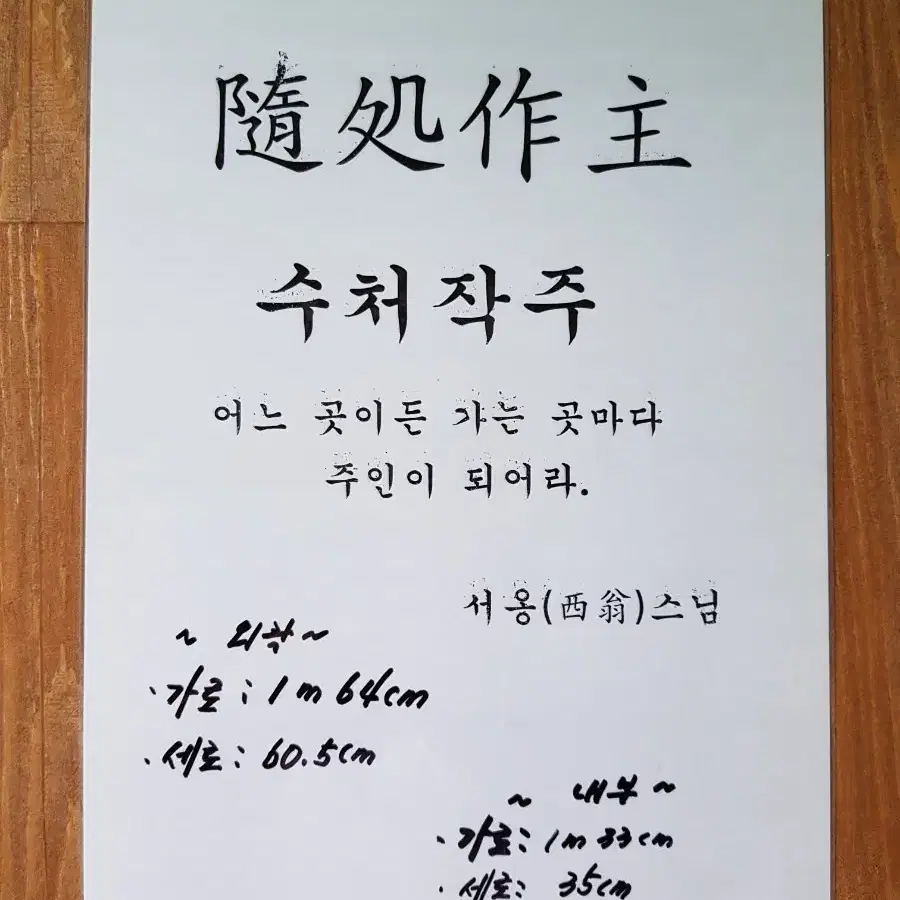 隨処作主
수처작주
어느 곳이든 가는 곳마다
주인이 되어라.
서옹(西翁)스님
~ 외곽 ~
· 가로 : 1m 64cm
· 세로 : 60.5cm
~ 내부 ~
· 가로 : 1m 33cm
· 세로 : 35cm